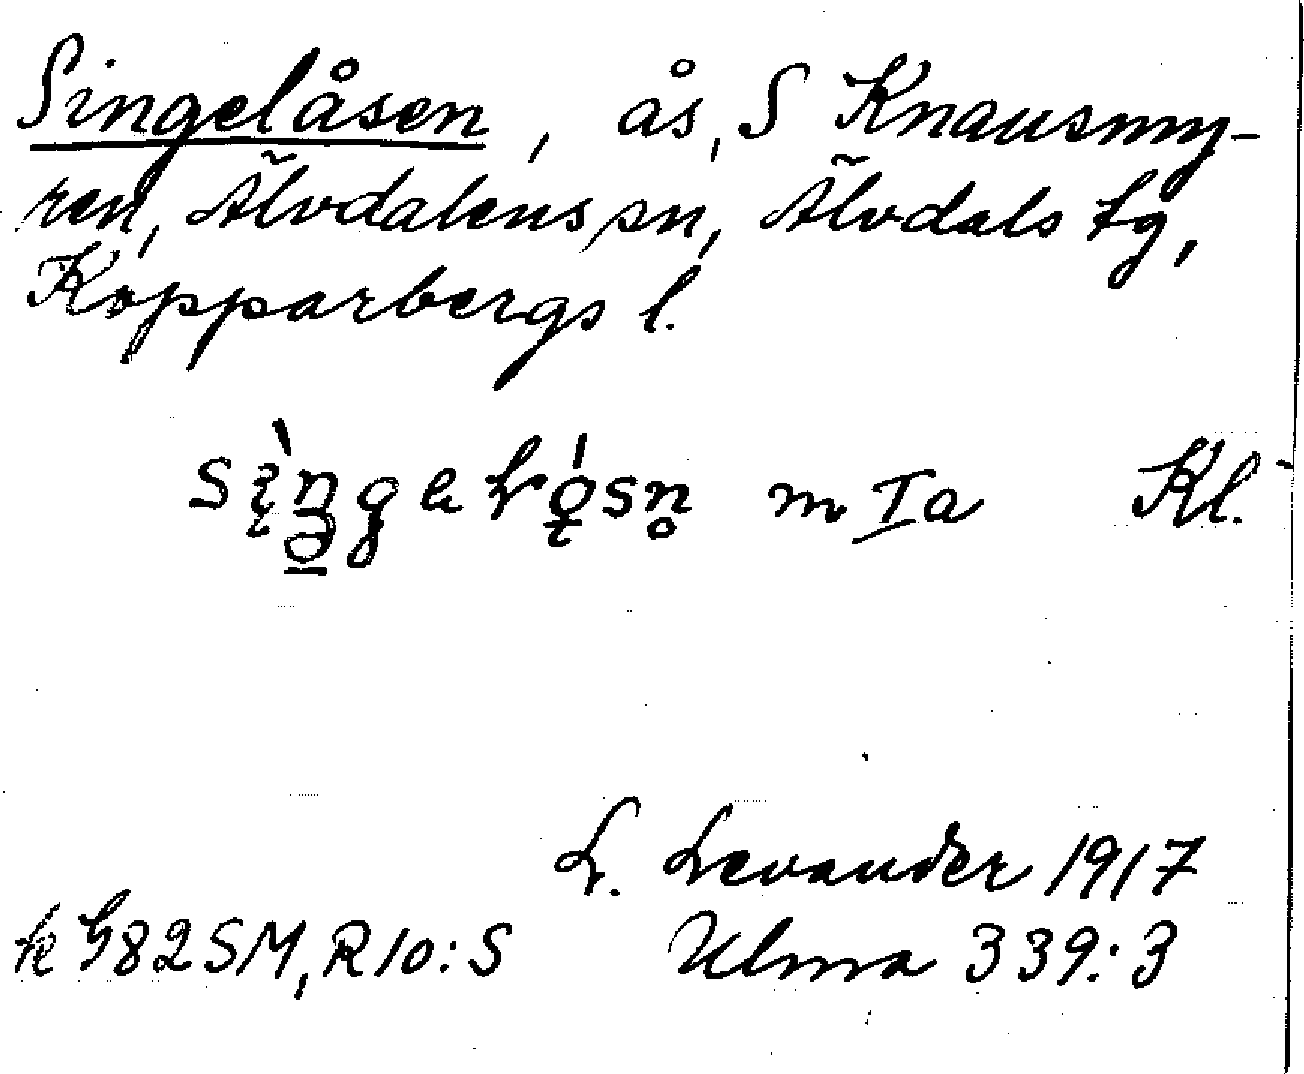 Singelåsen, ås, S Knausmy-
ren, Älvdalens sn, Älvdals tg,
Kopparbergs l.
m Ia Kl.
L. Levander 1917
k G82SM, R10:S Ulma 339:3